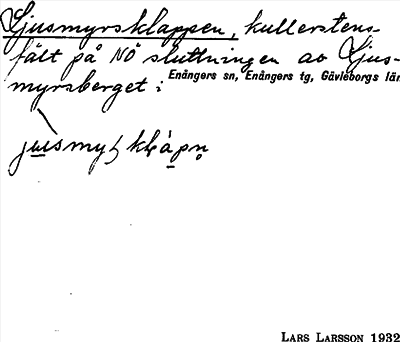 Ljusmyrsklappen, kullerstens-
fält på NÖ sluttningen av Ljus-
myrsberget :
Enångers sn, Enångers tg, Gävleborgs län
LARS LARSSON 1932